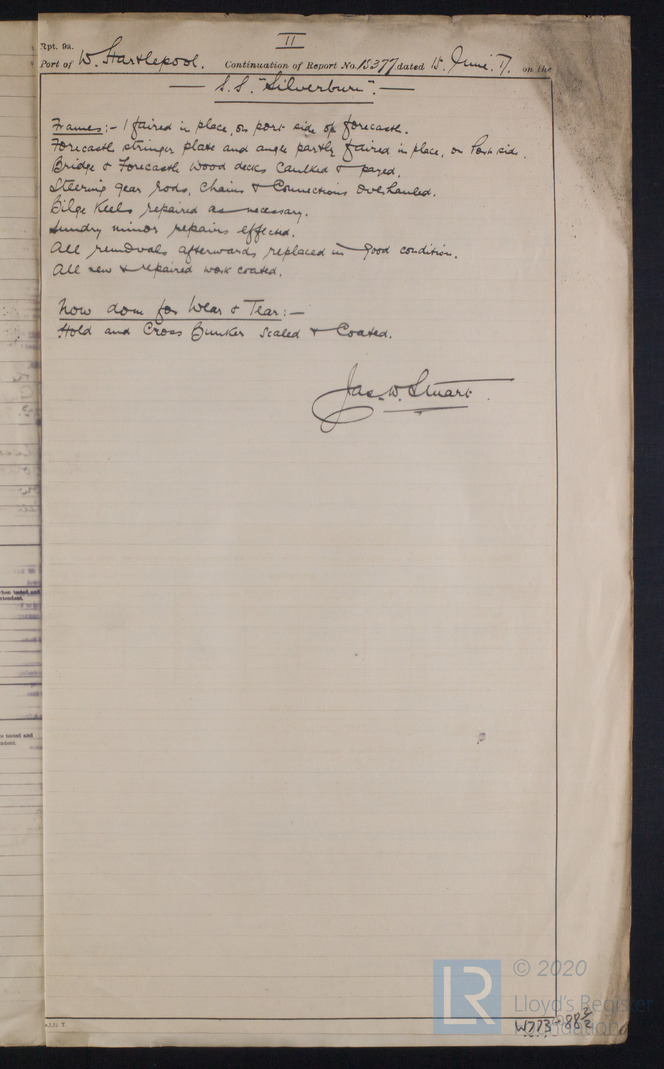 II
Rpt. 9a.
Port of W. Hartlepool. Continuation of Report No. 15377 dated 15. June. 17. on the
S.S. "Silverburn".
Frames:- 1 faired in place, on port side of forecastle.
Forecastle stringer plate and angle partly faired in place, on Port side.
Bridge & Forecastle wood decks caulked & payed.
Steering gear rods, chains & Connections overhauled.
Bilge Keels repaired as necessary.
Sundry minor repairs effected.
All removals afterwards replaced in good condition.
All new & repaired work coated.
Now done for Wear & Tear:-
Hold and Cross Bunker scaled & Coated.
Jas. W. Stuart.
when tested and
tested and
LR
© 2020
Lloyd's Register
Foundation
W773-